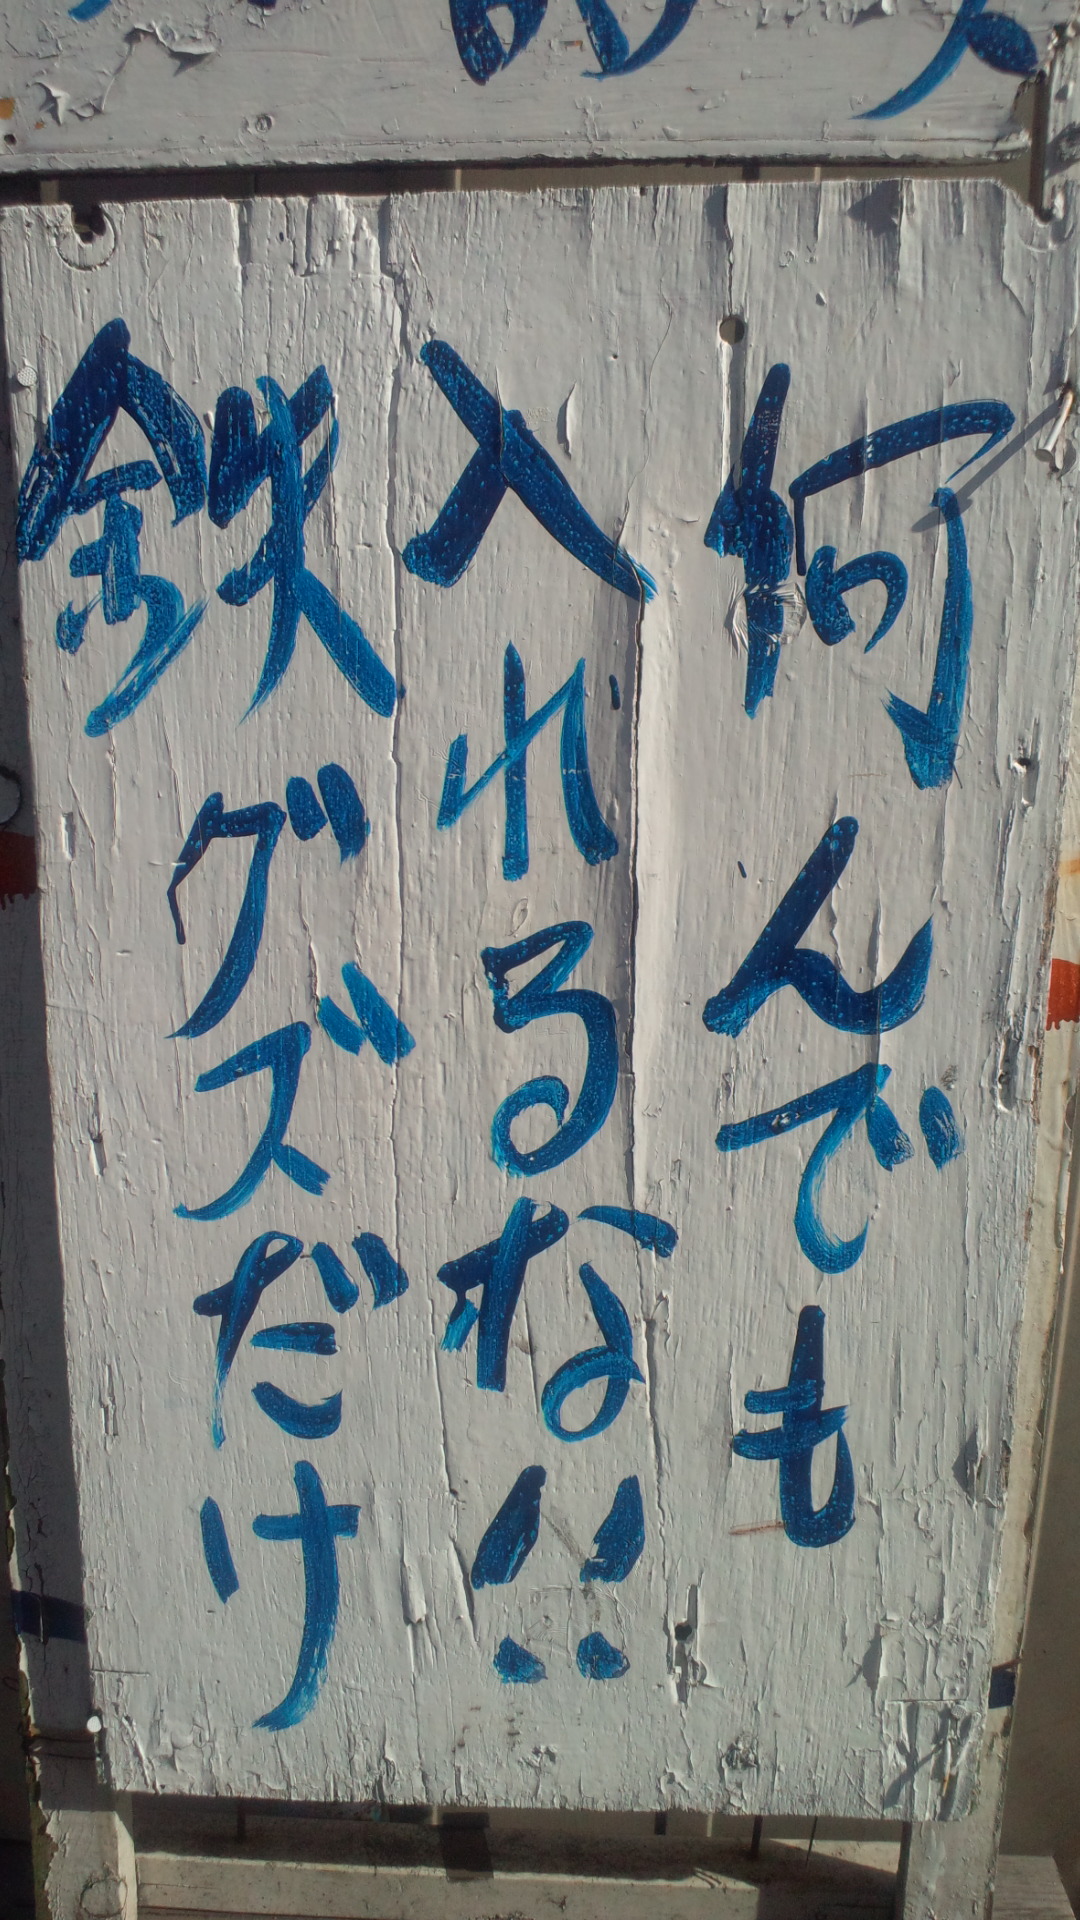 何んでも
入れるな!!
鉄グズだけ